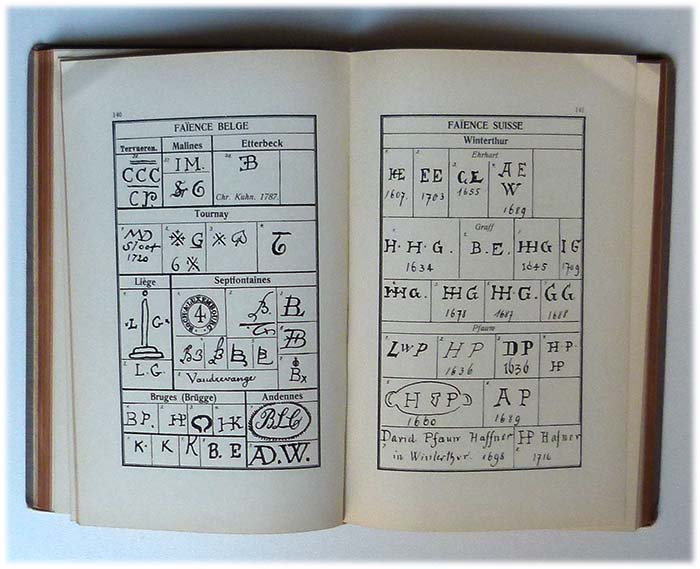 140
FAÏENCE BELGE
Tervueren. Malines Etterbeck
CCC
IM.
B
Chr. Kuhn. 1787.
Tournay
G
6
Liège Septfontaines
L G.
BOCH A LUXEMBOURG
4
B.
B
L.G.
B
B
B
Bx
Vaudrevange
Bruges (Brügge) Andennes
B P. HP HK BLC
K. K. K B. E AD.W.
141
FAÏENCE SUISSE
Winterthur
Ehrhart
HE EE GE A E
W
1607. 1703 1655 1689
Graff
H·H·G. B.E. HHG IG
1634 1645 1709
HHG. HHG HH·G. GG
1678 1687 1688
Pfauw
LWP HP DP HP·
HP
1636 1636
H & P A P
1660 1689
David Pfauw Haffner HP Hafner
in Winterthur. 1698 1716